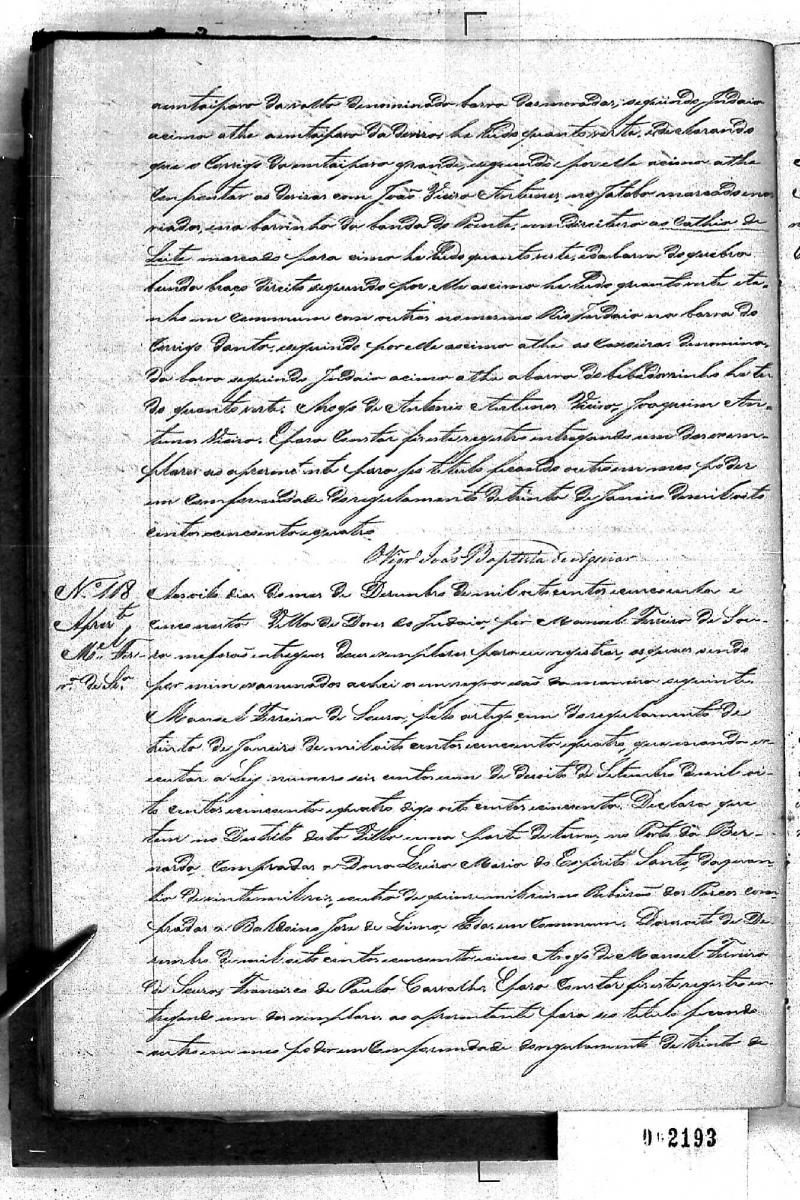 acima athe
que o Corrigo da contaiparo grande, seguindo por elle acima athe
Confrontar as devizas com João Vieira Antunes, no Jatobá marcado
barrinho da banda do Poente, em direitura ao
Leite marcado para cima he tudo quanto verte, e da barra do quebra
bunda braço direito seguindo por elle ascima he tudo quanto verte e te
nho em Commum com outros no mesmo Rio Indaia na barra do
Corrigo Danta, seguindo por elle ascima athe as Caxoeira denomina
da barra seguindo Indaia acima athe a barra do bebedorzinho he tu
do quanto verte. Arogo de Antonio Antunes Vieira, Joaquim An-
tunes Vieira. E para Constar fis este registro entregando um dos exem-
plares ao aprezentante para seo titulo ficando outro em meo poder
em Comformidade do regulamento de trinta de Janeiro de mil oito
centos e cincoenta e quatro.
O Vigr.º João Baptista de Aguiar
N.º 118
Aprez.t
M.el Fer-
r.ª de Sz.ª
Aos oito dias do mes de Dezembro de mil oito centos e cincoenta e
cinco nesta Villa de Dores do Indaia, por Manoel Ferreira de Sou-
za me forão entregues dous exemplares para eu registrar, os quaes sendo
por mim examinados achei os em regra e são da maneira seguinte.
Manoel Ferreira de Souza, pelo artigo cem do regulamento de
trinta de Janeiro de mil oito centos e cincoenta e quatro, que manda ex
ecutar a Ley numero seis centos e um de desoito de Setembro de mil oi-
to centos e cincoenta e quatro digo oito centos e cincoenta. Declara que
tem no Destrito desta Villa uma parte de terras, no Porto da Ber-
narda, Compradas a Dona Luiza Maria do Espirito Santo, da quan-
tia de vinte mil reis, e outra de quinze mil reis no Ribeirão dos Porcos com
pradas a Balduino Jose de Lima, todas em Commum. Dores oito de De-
zembro de mil oito centos e cincoenta e cinco Arogo de Manoel Ferreira
de Souza, Francisco de Paula Carvalho. E para Constar fis este registro en-
tregando um dos exemplares ao aprezentante para seo titulo ficando
outro em meo poder em Comformidade do regulamento de trinta de
2193